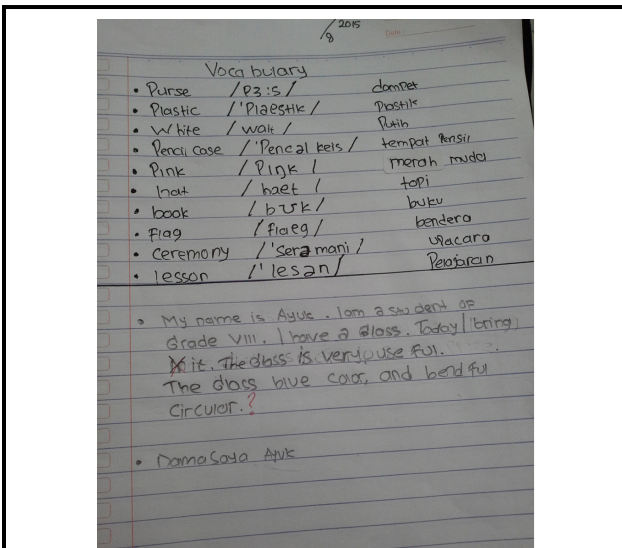 /8 2015
Date
Vocabulary
• Purse /p3:s/ dompet
• Plastic /'Plaestik/ Plastik
• White /wait/ Putih
• Pencil case /'Pencal keis/ tempat Pensil
• Pink /PIŋk/ merah muda
• hat /haet/ topi
• book /bʊk/ buku
• Flag /flaeg/ bendera
• ceremony /'serəmani/ upacara
• lesson /'lesən/ Pelajaran
• My name is Ayuk. I am a student of
Grade VIII. I have a glass. Today I bring
it. The glass is very use ful.
The glass blue color, and
Circular.?
• nama saya Ayuk